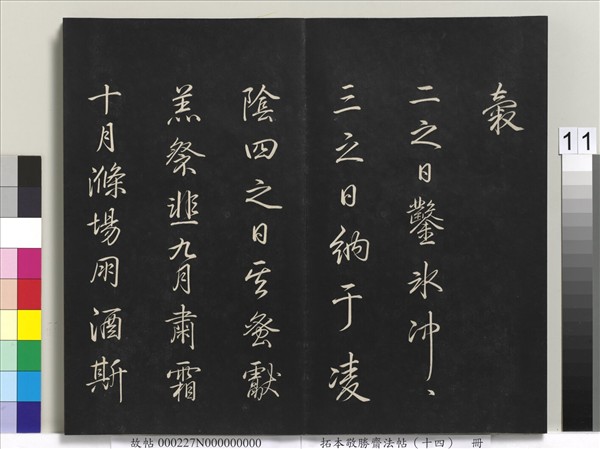 穀
二之日鑿氷冲〻
三之日納于凌
陰四之日其蚤獻
羔祭韭九月肅霜
十月滌場朋酒斯
11
故帖 000227N000000000 拓本敬勝齋法帖(十四) 冊